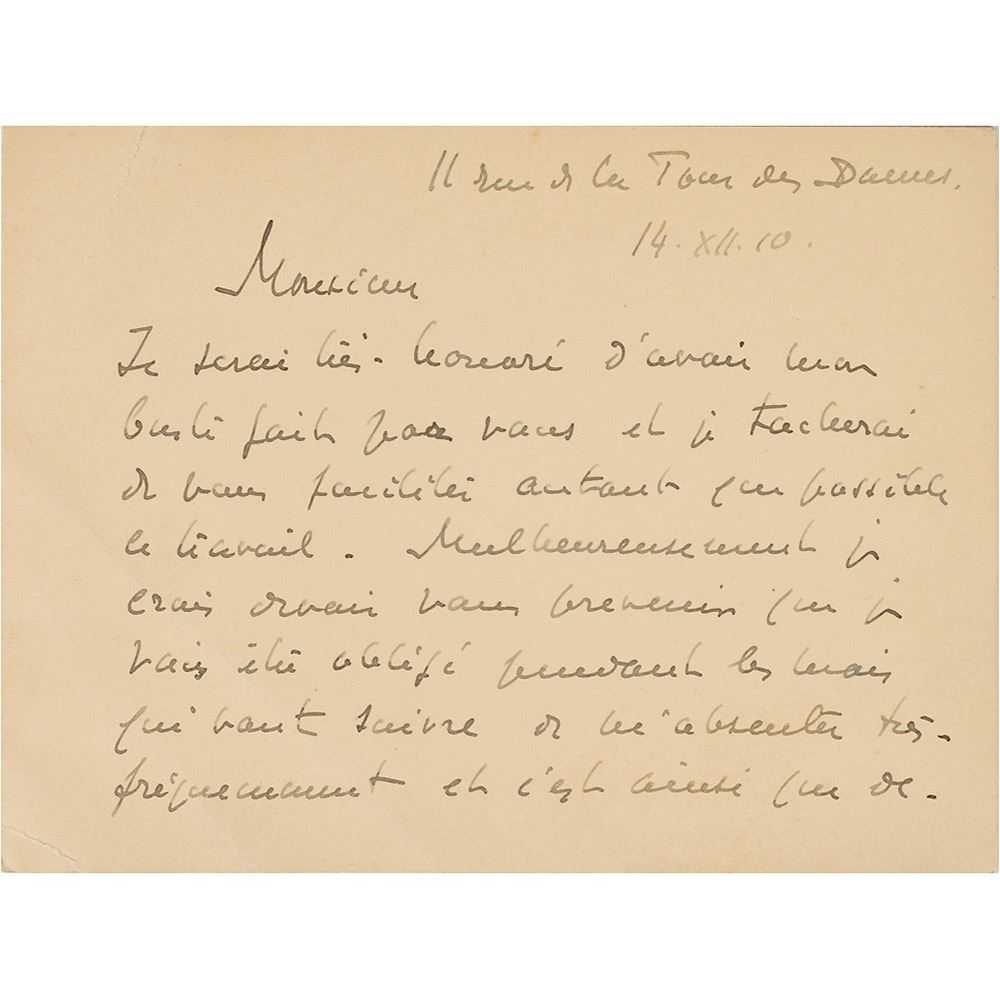 11 rue de la Tour des Dames.
14.XII.10.
Monsieur
Je serai très-honoré d'avoir mon
buste fait par vous et je tacherai
de vous faciliter autant que possible
le travail. Malheureusement je
crois devoir vous prevenir que je
vais être obligé pendant les mois
qui vont suivre de m'absenter très-
fréquemment et c'est ainsi que de-